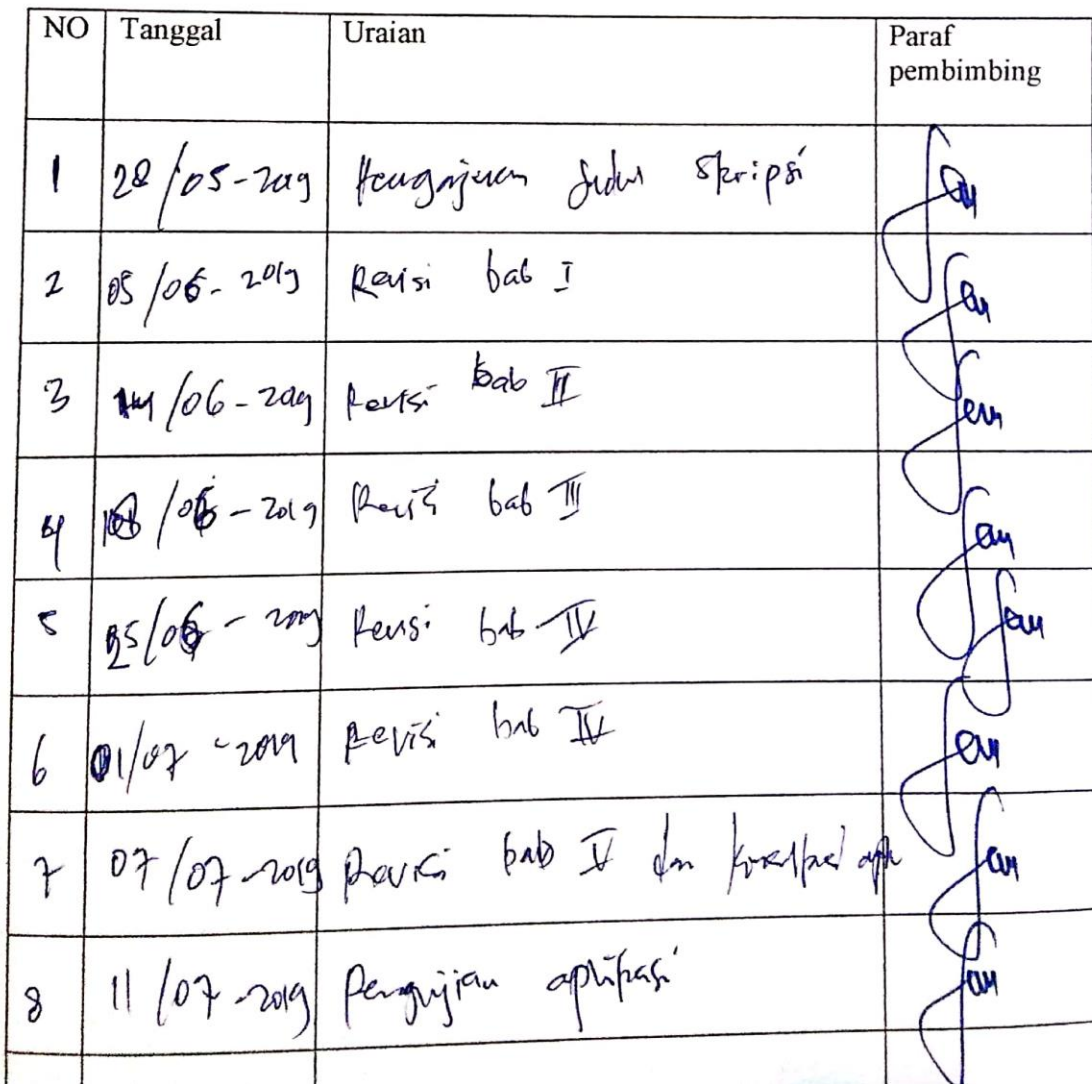 NO Tanggal Uraian Paraf
pembimbing
1 28/05-2019 Pengajuan Judul Skripsi
2 05/06-2019 Revisi bab I
3 14/06-2019 Revisi bab II
4 /06-2019 Revisi bab III
5 25/06-2019 Revisi bab IV
6 01/07-2019 Revisi bab IV
7 07/07-2019 Revisi bab V dan
8 11/07-2019 Pengujian aplikasi